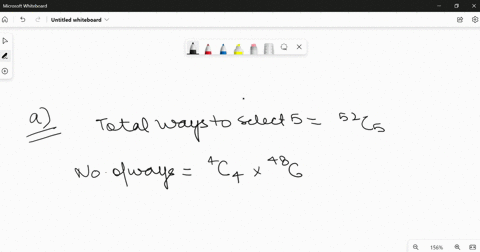 Microsoft Whiteboard
Untitled whiteboard
a) Total ways to select 5 = ⁵²C₅
No. of ways = ⁴C₄ × ⁴⁸C
156%